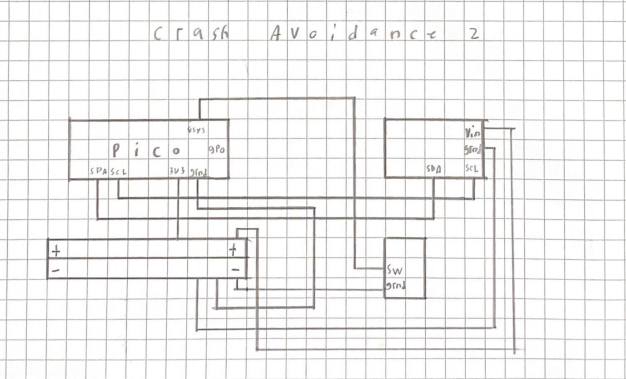 Crash Avoidance 2
VSYS
Pico
gP0
SDA SCL 3V3 grnd
Vin
grnd
SDA SCL
+ +
- -
SW
grnd